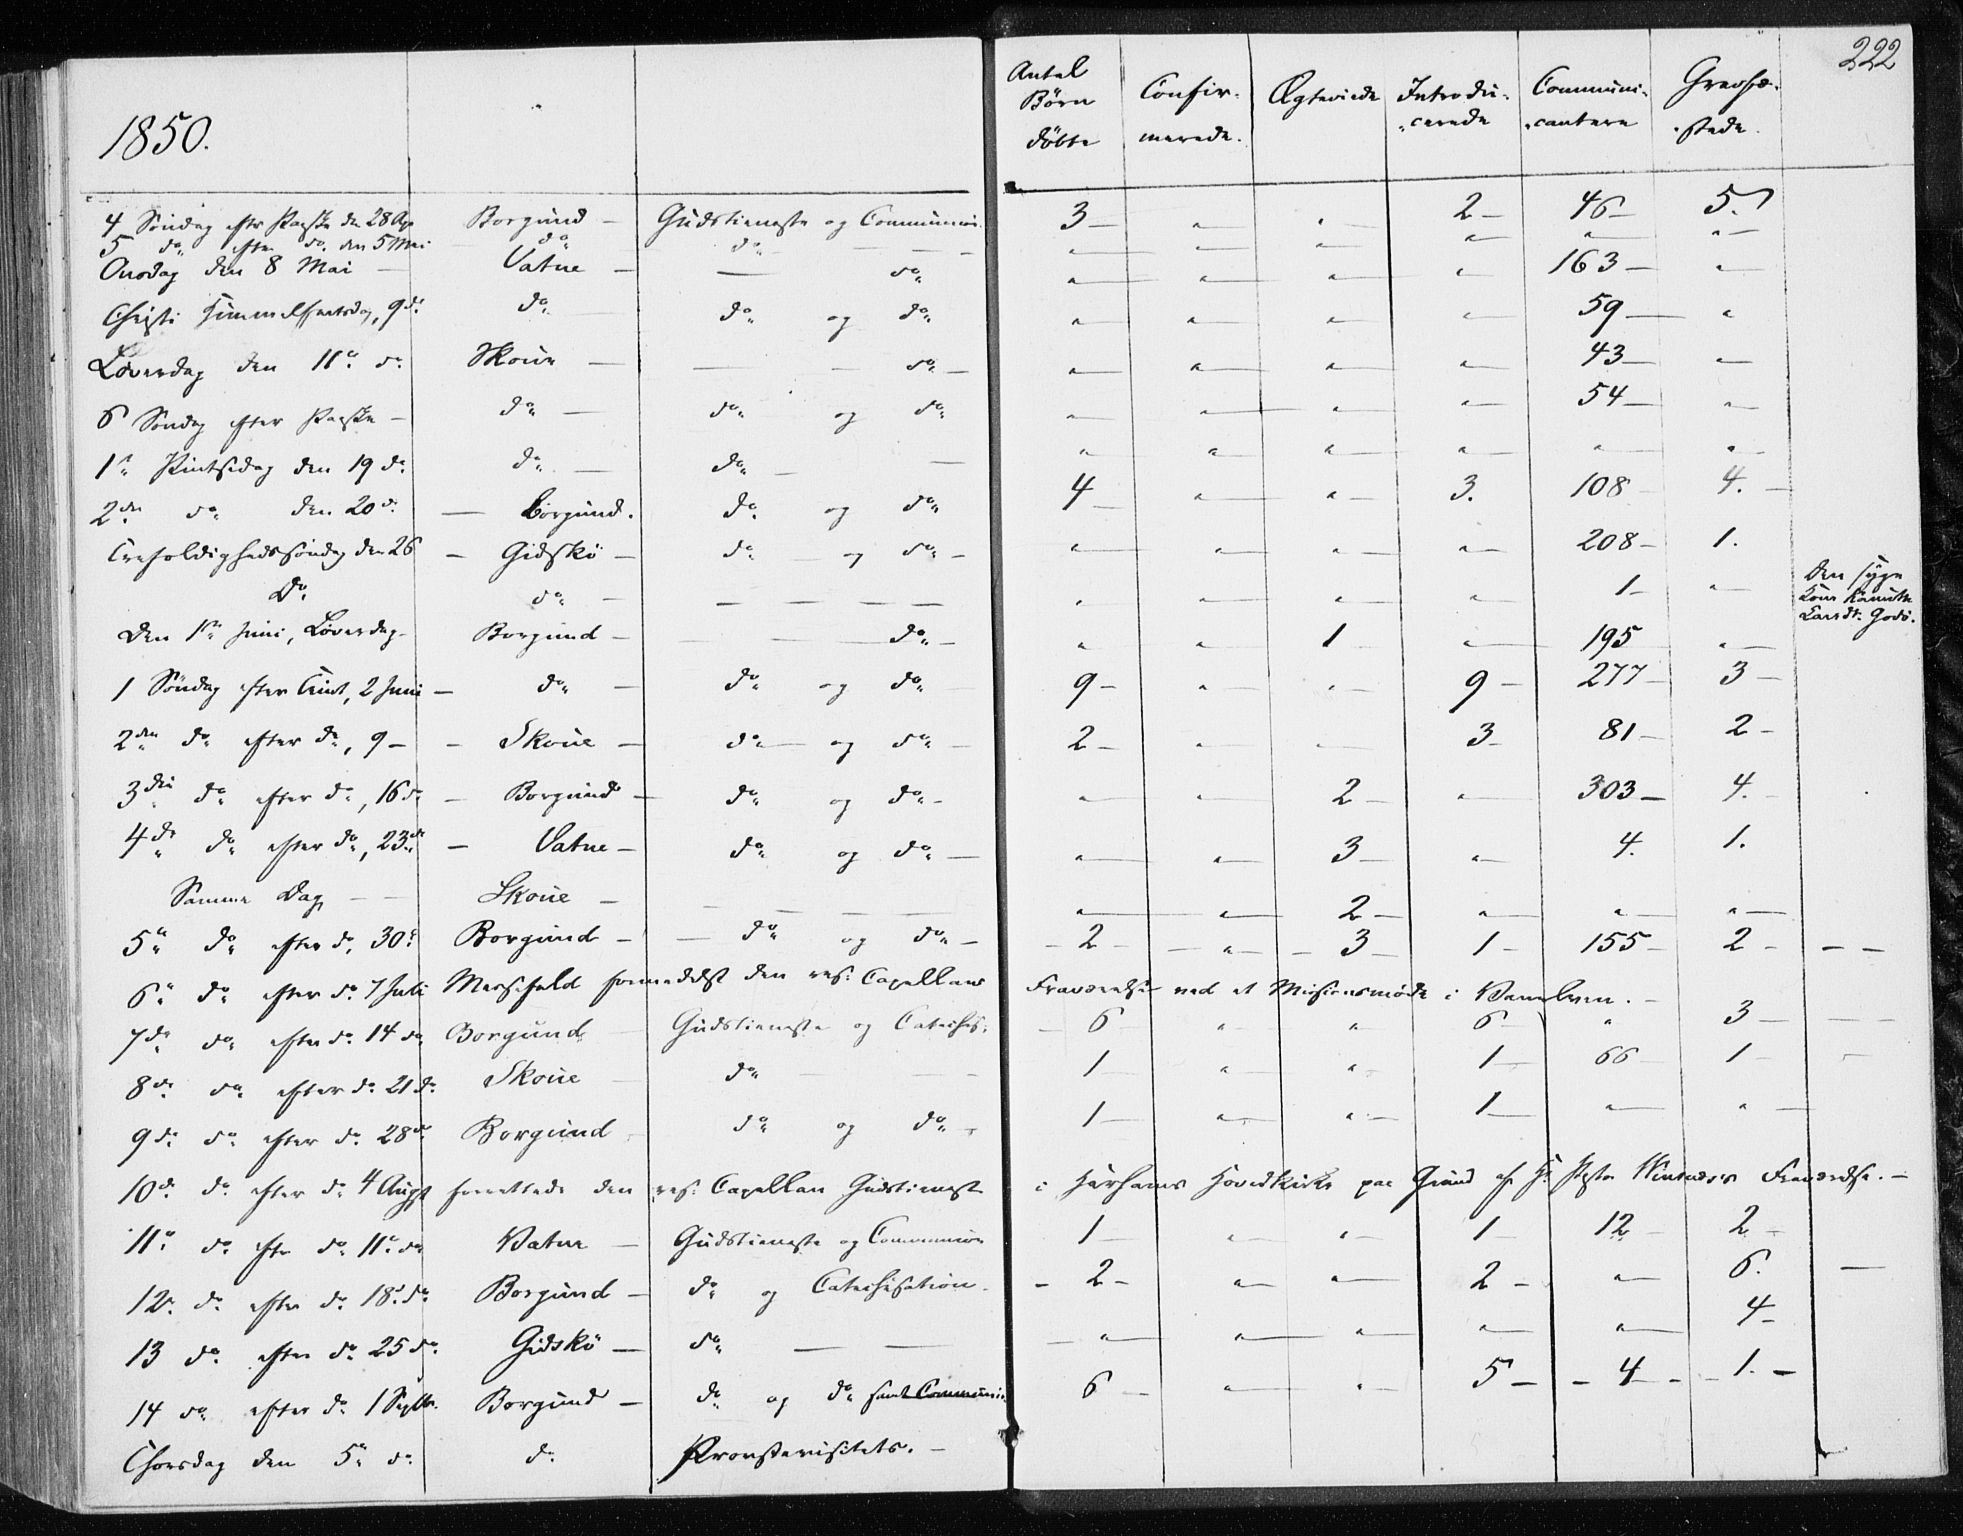 222
1850.
Antal Børn döbte | Confirmerede. | Ægteviede | Introducerede | Communicantere | Gravfæstede.
4 Söndag efter Paaske den 28 Apr | Borgund — | Gudstieneste og Communion | 3 — | " | " | 2 — | 46 — | 5.
5 do efter do den 5 Mai | do | do — — | " | " | " | " | " | "
Onsdag den 8 Mai — | Vatne — | — do | " | " | " | " | 163 — | "
Christi Himmelfartsdag, 9 do | do | do og do | " | " | " | " | 59 — | "
Löverdag den 11te do | Skoue — | — — do — | " | " | " | " | 43 — | "
6 Söndag efter Paaske — | do — | do og do | " | " | " | " | 54 — | "
1ste Pintsedag den 19 do | do — | do — — | " | " | " | " | " | "
2den do den 20 do | — Borgund. | do og do | 4 — | " | " | 3. | 108 | 4. —
Trefoldighedssöndag den 26 | — Gidskö — | do og do — | " | " | " | " | 208 — | 1.
Do | do — | — — — — | " | " | " | " | 1 — | " | Den syge Godö.
Den 1ste Juni, Löverdag — | Borgund — | — — do — | " | " | 1 | " | 195 | "
1 Söndag efter Trint, 2 Juni — | do — | do og do | 9 — | " | " | 9 — | 277 — | 3 —
2den do efter do, 9 — | — Skoue — | do og do — | 2 — | " | " | 3 — | 81 — | 2 —
3die do efter do, 16 do | — Borgund — | do og do — | " | " | 2 — | " | 303 — | 4. —
4de do efter do, 23 do | — Vatne — | do og do — | " | " | 3 — | " | 4. | 1.
Samme Dag — — | Skoue — | — — — — | " | " | 2 — | " | " | "
5te do efter do, 30te | Borgund — | — do og do — | — 2 — | " | 3 — | 1 — | 155 — | 2 — | — —
6te do efter do 7 Juli Messefald formedelst den res: Capellans Fraværelse ved et Missionsmöde i Vanelven. —
7de do efter do 14 do | Borgund | Gudstieneste og Cateches: | — 6 | " | " | 6 — | " | 3 — | — —
8de do efter do 21 do | Skoue — | do — — — | 1 — | " | " | 1 — | 66 — | 1 — | —
9de do efter do 28 do | Borgund — | do og do — | 1 — | " | " | 1 — | " | "
10de do efter do 4 Augst forrettede den res: Capellan Gudstieneste i Harhams Hovedkirke paa Grund af Hr Fraværelse. —
11te do efter do 11te do | Vatne — | Gudstieneste og Communion | 1 — | " | " | 1 — | 12 — | 2 —
12te do efter do 18de do | Borgund — | do og Catechisation — | — 2 — | " | " | 2 — | " | 6. | —
13 do efter do 25 do | Gidskö — | do — — | " | " | " | " | " | 4 —
14 do efter do 1 Septbr. | Borgund — | do og do samt Communion | 6 — | " | " | 5 — | — 4 — | 1. —
Thorsdag den 5te do | do | Provstevisitats. —